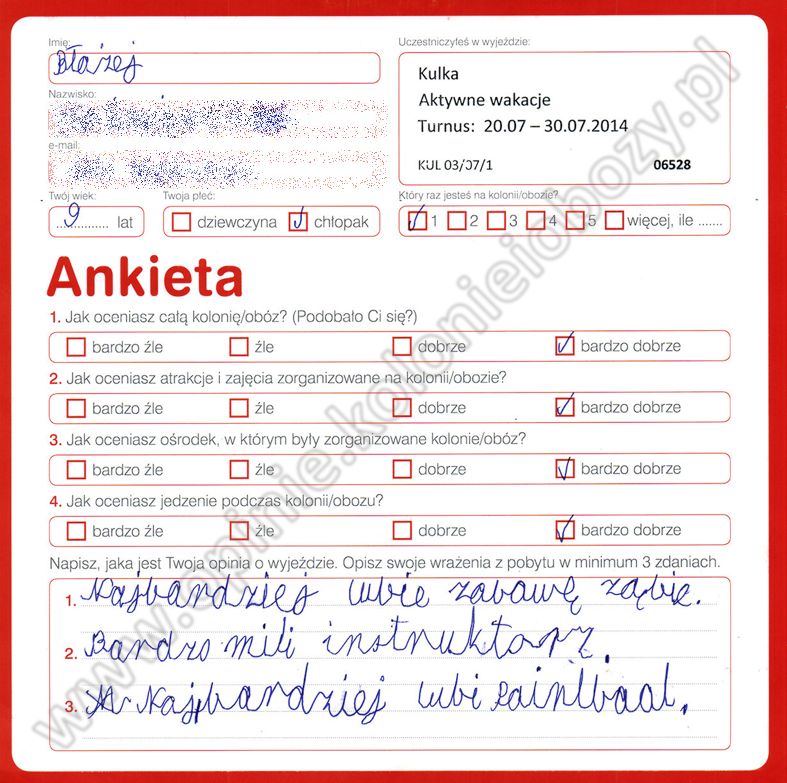 Imię:
Błażej
Uczestniczyłeś w wyjeździe:
Kulka
Aktywne wakacje
Turnus: 20.07 – 30.07.2014
KUL 03/07/1 06528
Nazwisko:
e-mail:
Twój wiek:
9 lat
Twoja płeć:
dziewczyna chłopak
Który raz jesteś na kolonii/obozie?
1 2 3 4 5 więcej, ile .......
Ankieta
1. Jak oceniasz całą kolonię/obóz? (Podobało Ci się?)
bardzo źle źle dobrze bardzo dobrze
2. Jak oceniasz atrakcje i zajęcia zorganizowane na kolonii/obozie?
bardzo źle źle dobrze bardzo dobrze
3. Jak oceniasz ośrodek, w którym były zorganizowane kolonie/obóz?
bardzo źle źle dobrze bardzo dobrze
4. Jak oceniasz jedzenie podczas kolonii/obozu?
bardzo źle źle dobrze bardzo dobrze
Napisz, jaka jest Twoja opinia o wyjeździe. Opisz swoje wrażenia z pobytu w minimum 3 zdaniach.
1. Najbardziej lubie zabawę
2. Bardzo mili instruktorz.
3. Najbardziej lubi Paintbaal.
www.opinie.kolonieiobozy.pl